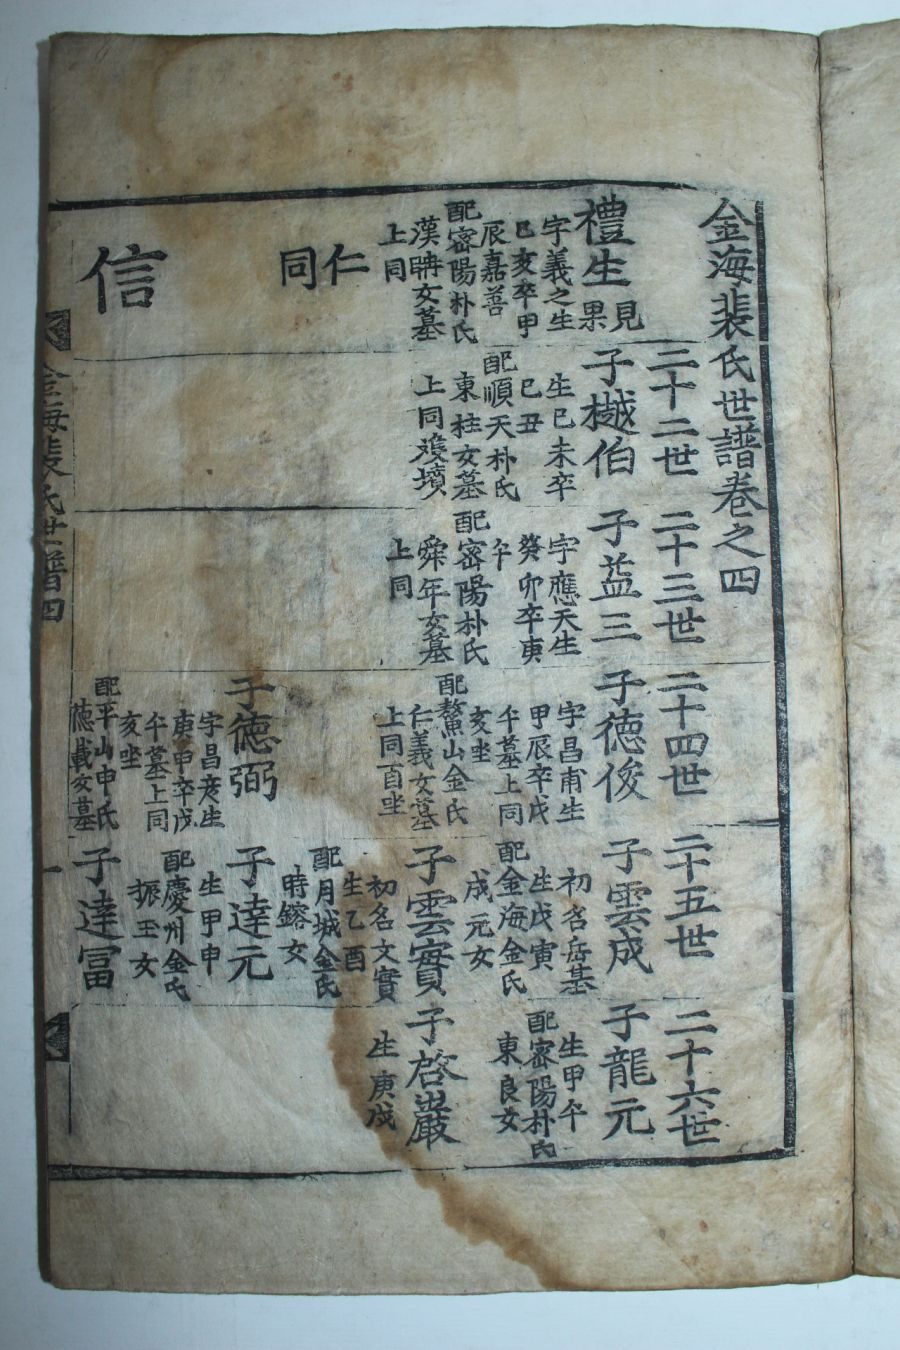 金海裴氏世譜卷之四
禮生
見
果
字義之生
己亥卒甲
辰嘉善
配密陽朴氏
漢聃女墓
上同
仁
同
信
二十二世
子樾伯
生己未卒
己丑
配順天朴氏
東柱女墓
上同雙墳
二十三世
子益三
字應天生
癸卯卒庚
午
配密陽朴氏
舜年女墓
上同
二十四世
子德俊
字昌甫生
甲辰卒戊
午墓上同
亥坐
配鰲山金氏
仁義女墓
上同酉坐
子德弼
字昌彦生
庚申卒戊
午墓上同
亥坐
配平山申氏
德載女墓
二十五世
子雲成
初名岳基
生戊寅
配金海金氏
成元女
子雲實
初名文實
生乙酉
配月城金氏
時鎔女
子達元
生甲申
配慶州金氏
振玉女
子達冨
二十六世
子龍元
生甲午
配密陽朴氏
東良女
子啓巖
生庚戌
金海裴氏世譜四
一